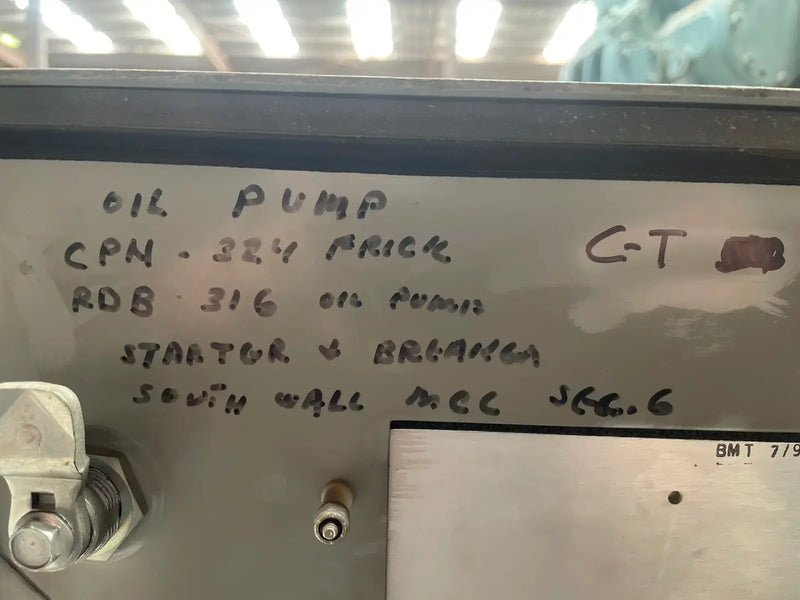 OIL PUMP
CPN - 324 FRICK
C-T
RDB 316 OIL PUMP
STARTOR & BREAKER
SOUTH WALL MCC SEC. 6
BMT 7/9